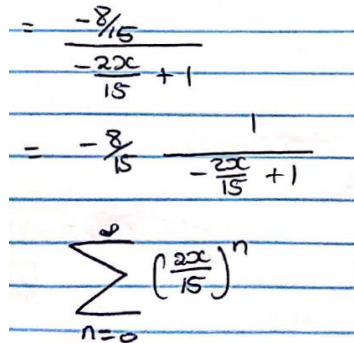 = (-8/15) / (-2x/15 + 1)
= -8/15 1/(-2x/15 + 1)
∞∑n=0 (2x/15)^n